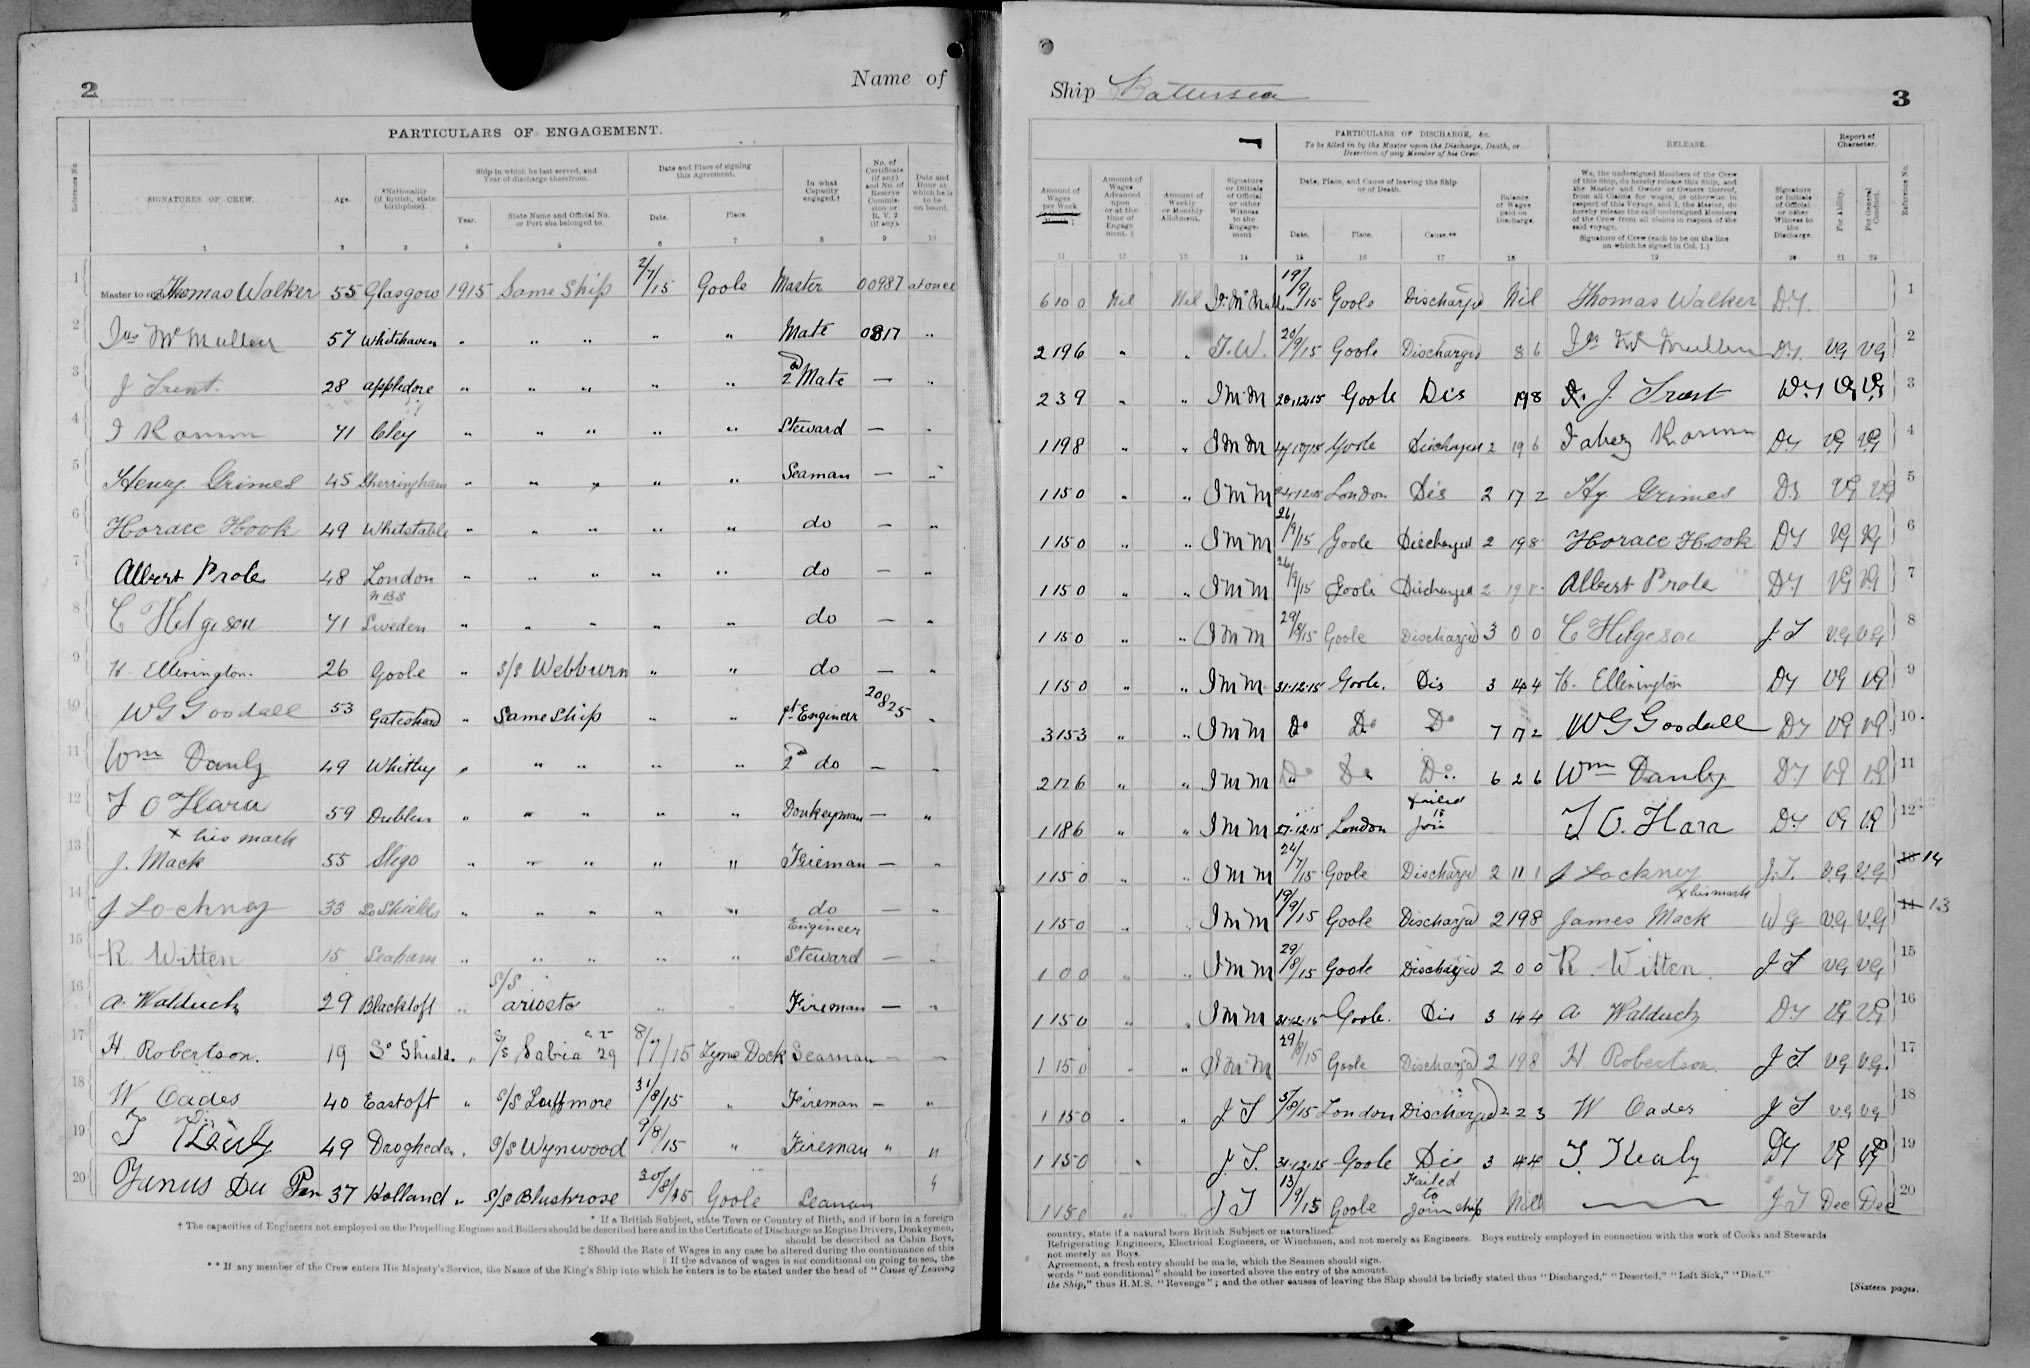 2
Name of
PARTICULARS OF ENGAGEMENT.
Reference No.
SIGNATURES OF CREW.
Age.
*Nationality (if British, state birthplace).
Ship in which he last served, and Year of discharge therefrom.
Year.
State Name and Official No. or Port she belonged to.
Date and Place of signing this Agreement.
Date.
Place.
In what Capacity engaged.†
No. of Certificate (if any) and No. of Reserve Commission or R.V. 2 (if any).
Date and Hour at which he is to be on board.
1 2 3 4 5 6 7 8 9 10
1 Master to sign Thomas Walker 55 Glasgow 1915 Same Ship 2/7/15 Goole Master 00987 at once
2 Jas McMullen 57 Whitehaven " " " " " Mate 0817 "
3 J Trust 28 appledore " " " " " 2nd Mate — "
4 J Ramm 71 Cley " " " " " Steward — "
5 Henry Grimes 45 Sherringham " " " " " Seaman — "
6 Horace Hook 49 Whitstable " " " " " do — "
7 Albert Prole 48 London " " " " " do — "
8 C Helgeson 41 N.B.S Sweden " " " " " do — "
9 H. Ellerington. 26 Goole " S/S Webburn " " do — "
10 W G Goodall 53 Gateshead " Same Ship " " 1st Engineer 20825 "
11 Wm Danby 49 Whitby " " " " " 2nd do — "
12 J O'Hara 59 Dublin " " " " " Donkeyman — "
13 x his mark J. Mack 55 Sligo " " " " " Fireman — "
14 J Lockney 33 So Shields " " " " " do — "
15 R. Witten 15 Seaham " " " " " Engineer Steward — "
16 A. Walduck 29 Blacktoft " S/S ariosto " " Fireman — "
17 H Robertson. 19 So Shields " S/S Sabia 29 8/7/15 Tyne Dock Seaman — —
18 W Oades 40 Eastoft " S/S Luffmore 31/8/15 " Fireman — "
19 T Kealy 49 Drogheda " S/S Wynwood 9/8/15 " Fireman " "
20 Junus Du Pan 37 Holland " S/S Blushrose 30/8/15 Goole Seaman "
* If a British Subject, state Town or Country of Birth, and if born in a foreign
† The capacities of Engineers not employed on the Propelling Engines and Boilers should be described here and in the Certificate of Discharge as Engine Drivers, Donkeymen,
should be described as Cabin Boys,
‡ Should the Rate of Wages in any case be altered during the continuance of this
|| If the advance of wages is not conditional on going to sea, the
** If any member of the Crew enters His Majesty's Service, the Name of the King's Ship into which he enters is to be stated under the head of "Cause of Leaving
Ship Battersea
3
1
PARTICULARS OF DISCHARGE, &c.
To be filled in by the Master upon the Discharge, Death, or Desertion of any Member of his Crew.
RELEASE.
Report of Character.
Amount of Wages per Week
Amount of Wages Advanced upon or at the time of Engagement.‡
Amount of Weekly or Monthly Allotment.
Signature or Initials of Official or other Witness to the Engagement
Date, Place, and Cause of leaving the Ship or of Death.
Date.
Place.
Cause.**
Balance of Wages paid on Discharge.
We, the undersigned Members of the Crew of this Ship, do hereby release this Ship, and the Master and Owner or Owners thereof, from all Claims for wages, or otherwise in respect of this Voyage, and I, the Master, do hereby release the said undersigned Members of the Crew from all claims in respect of the said voyage.
Signature of Crew (each to be on the line on which he signed in Col. 1.)
Signature or Initials of Official or other Witness to the Discharge.
For Ability.
For General Conduct.
Reference No.
11 12 13 14 15 16 17 18 19 20 21 22
6 10 0 Nil Nil 19/9/15 Goole Discharged Nil Thomas Walker D.Y. 1
2 19 6 " " T.W. 20/9/15 Goole Discharged 8 6 Jas McMullen D.Y. VG VG 2
2 3 9 " " JMM 20.12.15 Goole Dis 19 8 J Trust D.Y VG VG 3
1 19 8 " " JMM Goole Discharged 2 19 6 Jabez Ramm DY VG VG 4
1 15 0 " " JMM 24.12.15 London Dis 2 17 2 Hy Grimes DY VG VG 5
1 15 0 " " JMM 26/9/15 Goole Discharged 2 19 8 Horace Hook DY VG VG 6
1 15 0 " " JMM 26/9/15 Goole Discharged 2 19 8 Albert Prole DY VG VG 7
1 15 0 " " JMM 29/8/15 Goole Discharged 3 0 0 C Helgeson J.T VG VG 8
1 15 0 " " JMM 31.12.15 Goole. Dis 3 14 4 H. Ellerington DY VG VG 9
3 15 3 " " JMM Do Do Do 7 17 2 W G Goodall DY VG VG 10
2 17 6 " " JMM Do Do Do 6 2 6 Wm Danby DY VG VG 11
1 18 6 " " JMM 27.12.15 London Failed to Join J O. Hara DY VG VG 12
1 15 0 " " JMM 24/7/15 Goole Discharged 2 11 1 J Lockney J.T. VG VG 13 14
1 15 0 " " JMM 19/9/15 Goole Discharged 2 19 8 James Mack x his mark W G VG VG 14 13
1 0 0 " " JMM 29/8/15 Goole Discharged 2 0 0 R. Witten. J T VG VG 15
1 15 0 " " JMM 31.12.15 Goole. Dis 3 14 4 A Walduck DY VG VG 16
1 15 0 " " JMM 29/8/15 Goole Discharged 2 19 8 H Robertson. J T VG VG. 17
1 15 0 " " J.T 5/8/15 London Discharged 2 2 3 W Oades J T VG VG 18
1 15 0 " J.T. 31.12.15 Goole Dis 3 14 4 T. Kealy DY VG VG 19
1 15 0 " " J T 13/9/15 Goole Failed to Join ship Nill J T Dec Dec 20
country, state if a natural born British Subject or naturalized.
Refrigerating Engineers, Electrical Engineers, or Winchmen, and not merely as Engineers. Boys entirely employed in connection with the work of Cooks and Stewards
not merely as Boys.
Agreement, a fresh entry should be made, which the Seamen should sign.
words "not conditional" should be inserted above the entry of the amount.
the Ship," thus H.M.S. "Revenge"; and the other causes of leaving the Ship should be briefly stated thus "Discharged," "Deserted," "Left Sick," "Died."
[Sixteen pages.